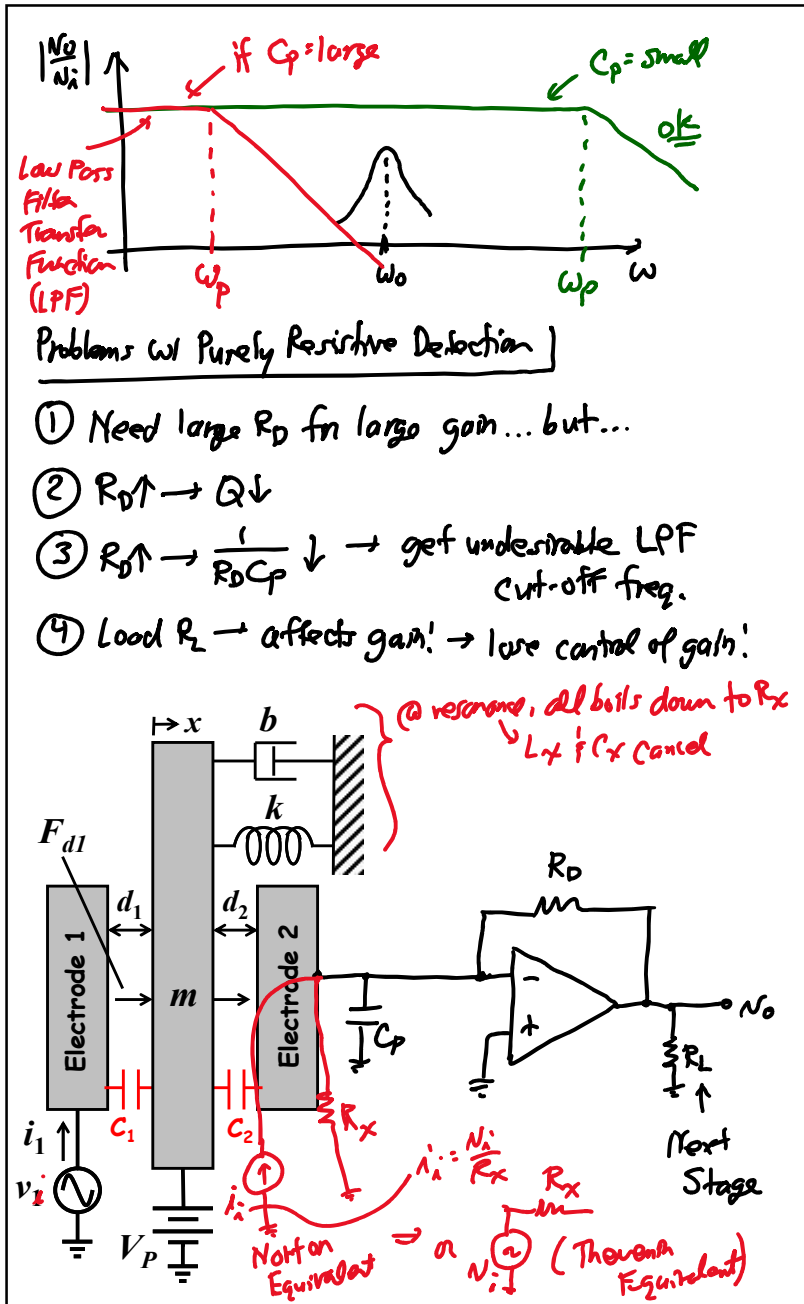 |No/Ni|
if Cp = large
Cp = small
ok
Low Pass
Filter
Transfer
Function
(LPF)
ωp
ωo
ωp
ω
Problems w/ Purely Resistive Detection
① Need large RD for large gain... but...
② RD↑ → Q↓
③ RD↑ → 1/(RD Cp) ↓ → get undesirable LPF
cut-off freq.
④ Load RL → affects gain! → lose control of gain!
x
b
@ resonance, all boils down to Rx
Lx & Cx cancel
k
Fd1
d1
d2
RD
Electrode 1
m
Electrode 2
-
+
Cp
No
RL
C1
C2
Rx
i1
ii
ii = Ni/Rx
Next
Stage
vi
VP
Norton
Equivalent
⇒ or
Rx
Ni
(Thevenin
Equivalent)